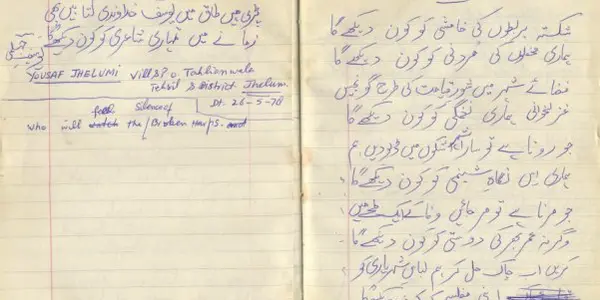 شکستہ بربطوں کی خامشی کو کون دیکھے گا
ہماری محفلوں کی مُردنی کو کون دیکھے گا
فضائے شہر میں شورِ قیامت کی طرح گونجیں
غزلخوانی ہماری نغمگی کو کون دیکھے گا
جو رونا ہے تو سارا اشکوں میں ڈبو دیں ہم
ہماری اس نگاہِ شبنمی کو کون دیکھے گا
جو مرنا ہے تو مر جائیں وفا کے ایک لمحے میں
وگرنہ عمر بھر کی دوستی کو کون دیکھے گا
کریں اب چاک مل کر ہم لباسِ شہریاری کو
پڑی ہیں طاق میں یوسف خداوندی کتابیں بھی
زمانے میں ہماری شاعری کو کون دیکھے گا
YOUSAF JHELUMI Vill & P.O. Takhianwala
Tehsil & District Jhelum.
Dt. 26-5-78
feel Silence of
who will watch the / Broken Harps. and